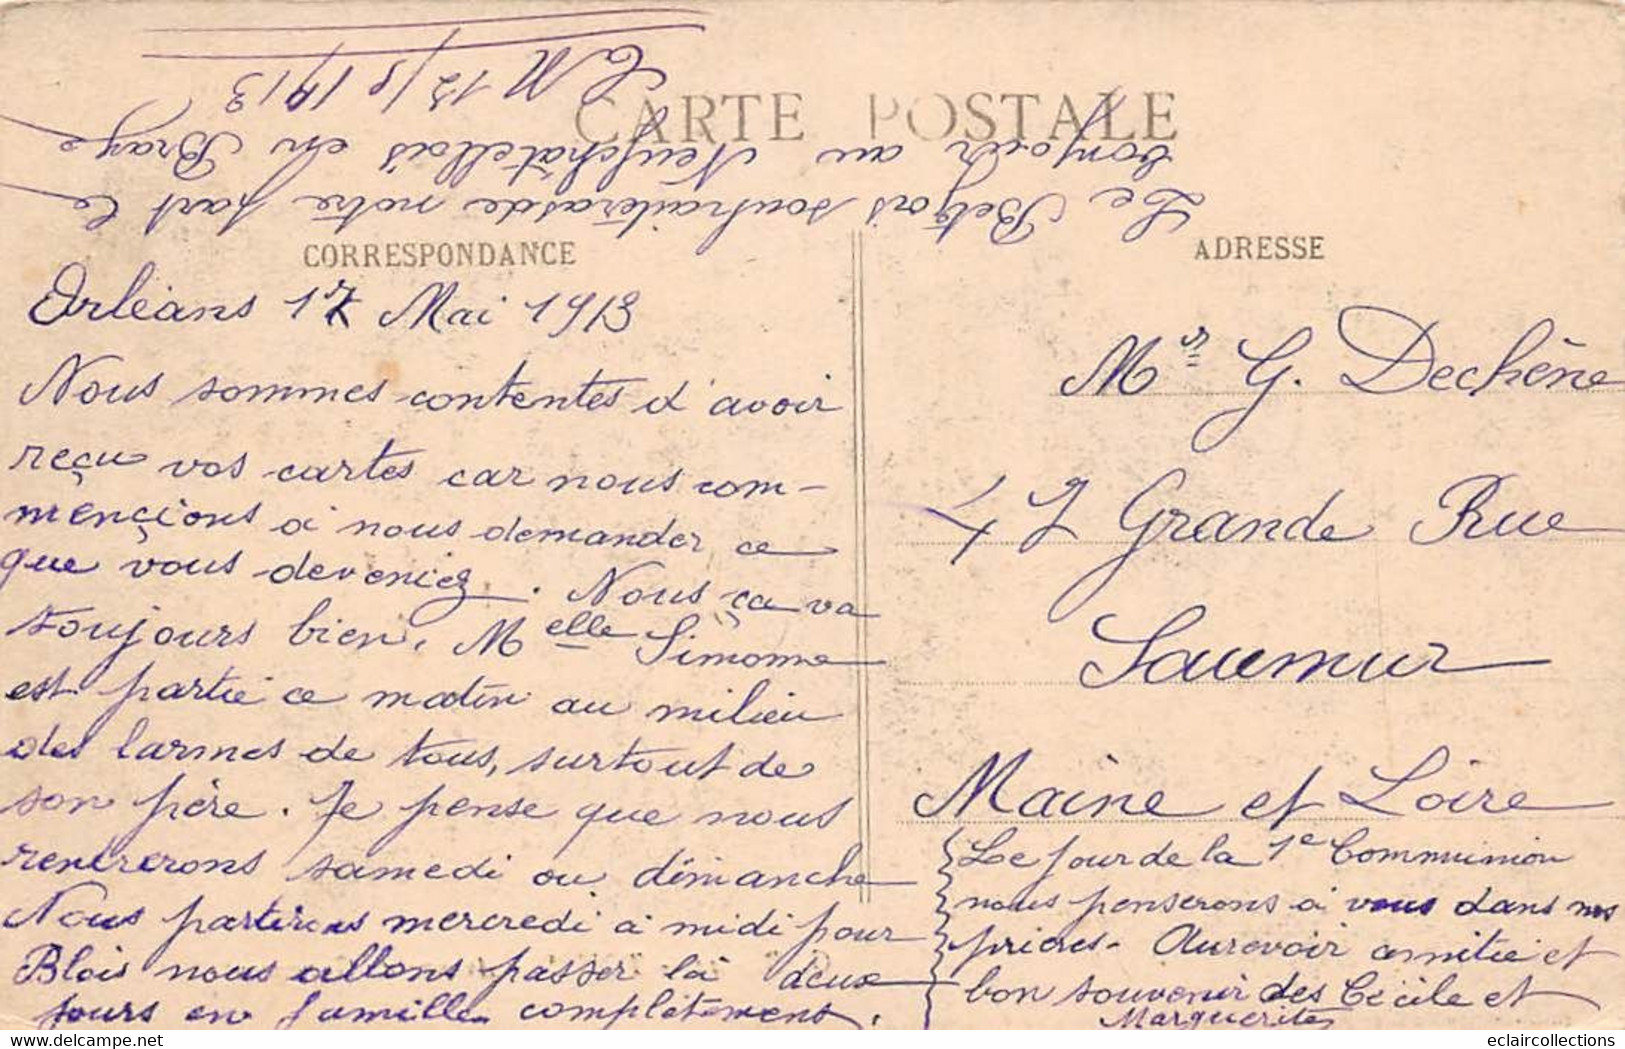 CARTE POSTALE
CORRESPONDANCE
Orléans 17 Mai 1913
Nous sommes contentes d'avoir
reçu vos cartes car nous com-
mençions à nous demander ce
que vous deveniez. Nous ça va
toujours bien. Melle Simonne
est partie ce matin au milieu
des larmes de tous, surtout de
son père. Je pense que nous
rentrerons samedi ou dimanche
Nous partirons mercredi à midi pour
Blois nous allons passer là deux
jours en famille complètement.
ADRESSE
Mr G. Dechêne
47 Grande Rue
Saumur
Maine et Loire
Le jour de la 1e Communion
nous penserons à vous dans nos
prières - Aurevoir amitié et
bon souvenir des Cécile et
Marguerites
Le souhaiteras de notre part le
bonjour au Neufchâtellois en Braye
13/5/1913
eclaircollections